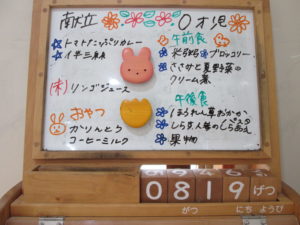 献立
トマトたっぷりカレー
(木)リンゴジュース
おやつ
かりんとう
コーヒーミルク
0才児
午前食
ブロッコリー
ささみと夏野菜の
クリーム煮
午後食
ほうれん草おかか
しらす人参の
果物
0819 げつ
がつ にち ようび